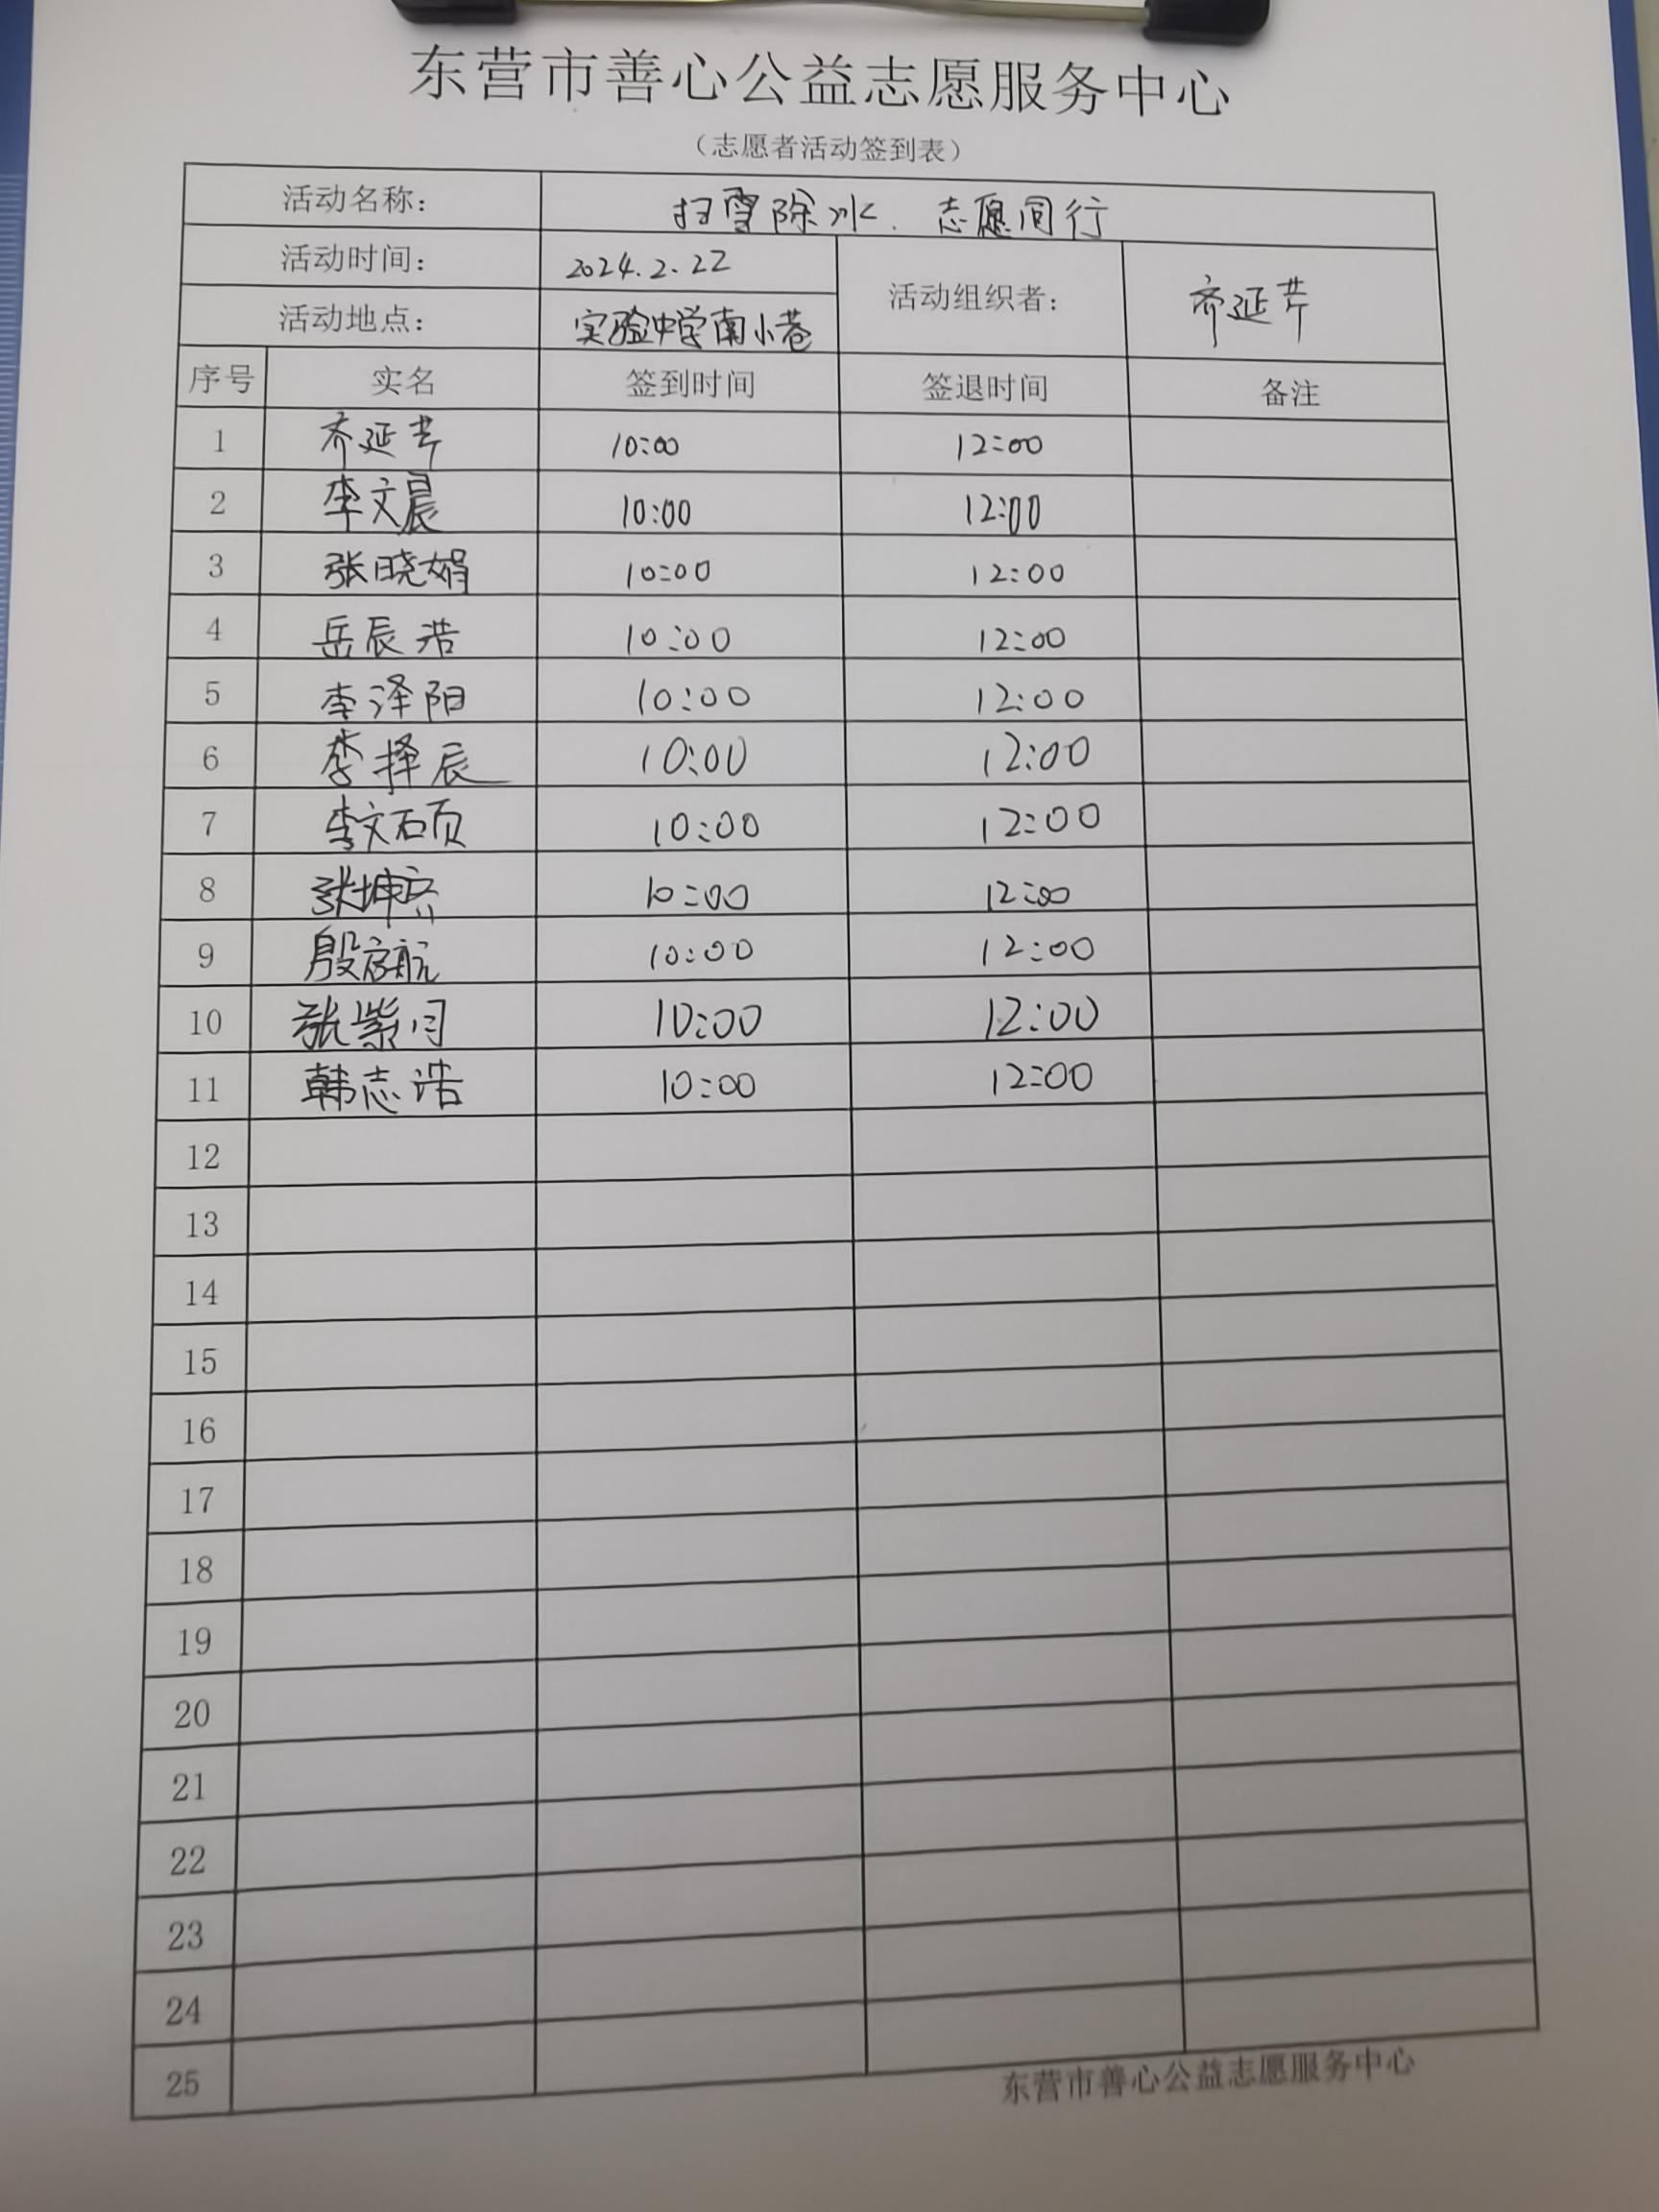 东营市善心公益志愿服务中心
（志愿者活动签到表）
活动名称： 扫雪除冰．志愿同行
活动时间： 2024.2.22 活动组织者： 齐延芹
活动地点： 实验中学南小巷
序号 实名 签到时间 签退时间 备注
1 齐延芹 10:00 12:00
2 李文晨 10:00 12:00
3 张晓娟 10:00 12:00
4 岳辰浩 10:00 12:00
5 李泽阳 10:00 12:00
6 李择辰 10:00 12:00
7 李文硕 10:00 12:00
8 张坤 10:00 12:00
9 殷启航 10:00 12:00
10 张紫月 10:00 12:00
11 韩志浩 10:00 12:00
12
13
14
15
16
17
18
19
20
21
22
23
24
25
东营市善心公益志愿服务中心